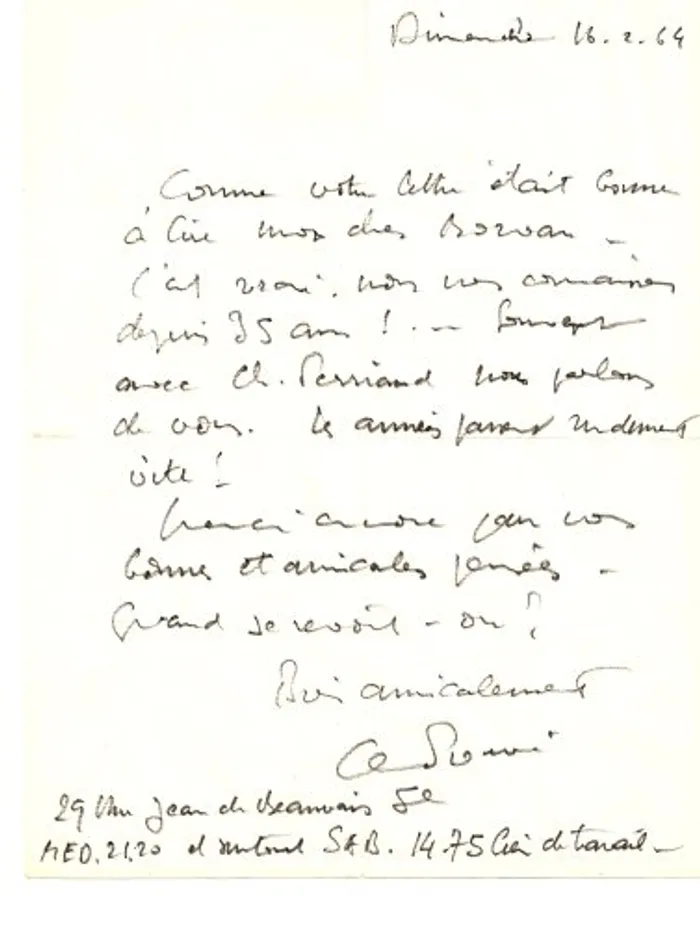 Dimanche 16.2.64
Comme votre lettre était bonne
à lire mon cher
C'est vrai, nous nous connaissons
depuis 35 ans ! .— Souvent
avec Ch. Perriand nous parlons
de vous. Les années passent rudement
vite !
Merci encore pour vos
bonnes et amicales pensées –
Quand se revoit-on ?
Bien amicalement
29 rue Jean de Beauvais 5e
MED.21.20 et surtout SAB. 14.75 lieu de travail –